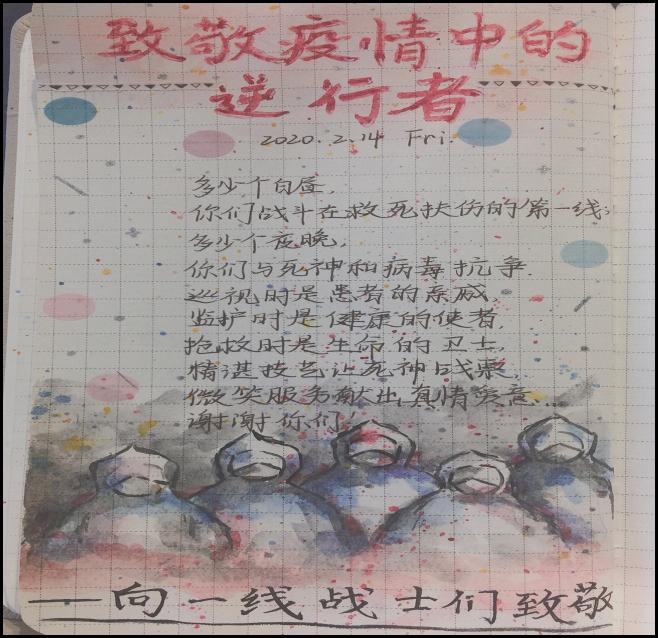 致敬疫情中的
逆行者
2020.2.14 Fri.
多少个白昼,
你们战斗在救死扶伤的第一线;
多少个夜晚,
你们与死神和病毒抗争.
巡视时是患者的亲戚,
监护时是健康的使者,
抢救时是生命的卫士,
精湛技艺让死神战栗,
微笑服务献出真情爱意...
谢谢你们!
——向一线战士们致敬